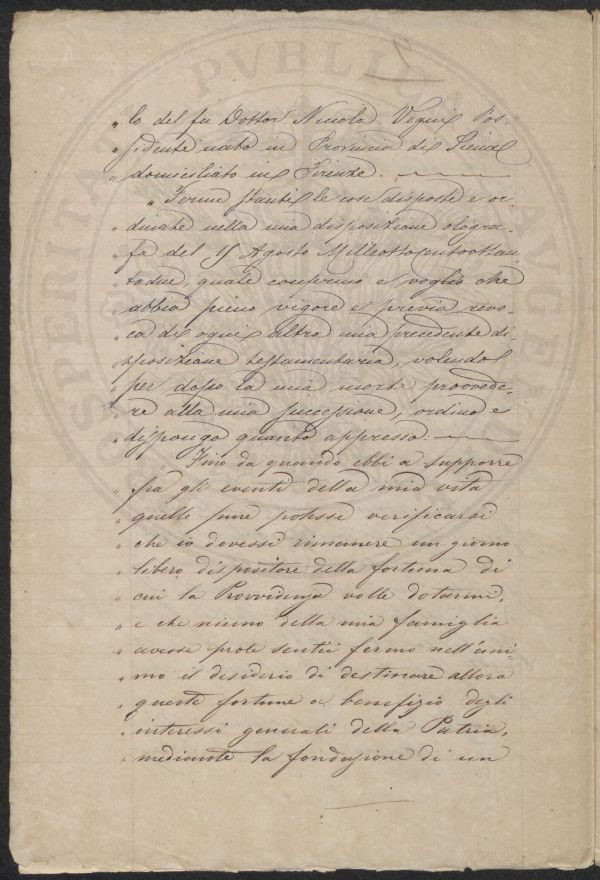 2
„ lo del fu Dottor Niccolò Vegni Pos-
„ sidente nato in Provincia di Siena
„ domiciliato in Firenze.
„ Ferme stanti le cose disposte e or-
„ dinate nella mia disposizione ologra-
„ fa del 15 Agosto Milleottocentoottan-
„ tadue, quale confermo e voglio che
„ abbia pieno vigore e previa revo-
„ ca di ogni altra mia precedente di-
„ sposizione testamentaria, volendo
„ per dopo la mia morte provvede-
„ re alla mia successione, ordino e
„ dispongo quanto appresso:
Fino da quando ebbi a supporre
„ fra gli eventi della mia vita
„ quello pure potesse verificarsi
„ che io dovessi rimanere un giorno
„ libero dispositore della fortuna di
„ cui la Provvidenza volle dotarmi,
„ e che niuno della mia famiglia
„ avesse prole sentii fermo nell'ani-
„ mo il desiderio di destinare allora
„ queste fortune a benefizio degli
„ interessi generali della Patria,
„ mediante la fondazione di un